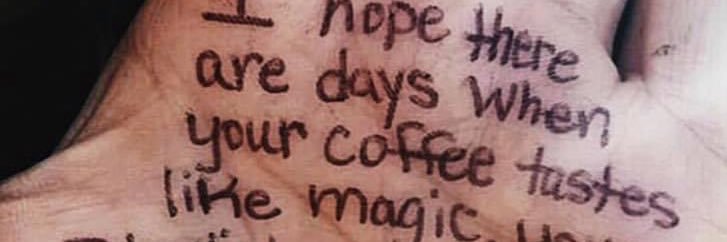 I hope there
are days when
your coffee tastes
like magic,